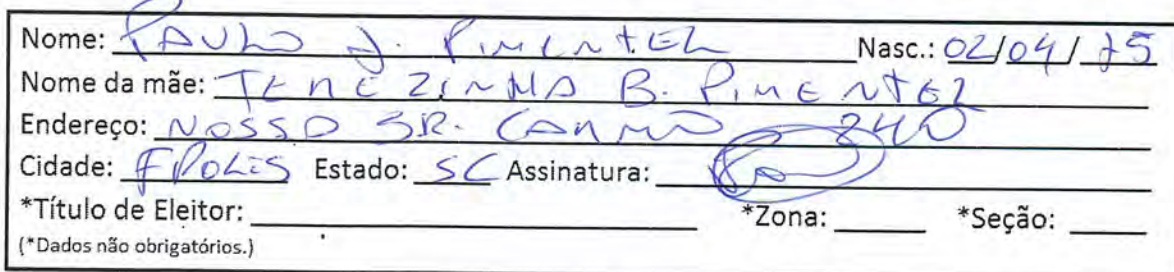 Nome: PAULO J. PIMENTEL Nasc.: 02/04/75
Nome da mãe: TEREZINHA B. PIMENTEL
Endereço: NOSSO SR. CARMO 240
Cidade: FPOLIS Estado: SC Assinatura:
*Título de Eleitor: *Zona: *Seção:
(*Dados não obrigatórios.)